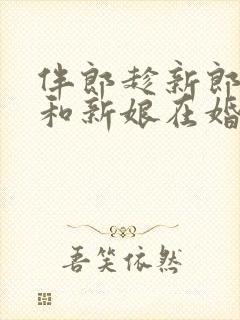 伴郎趁新郎
和新娘在婚
吾笑依然